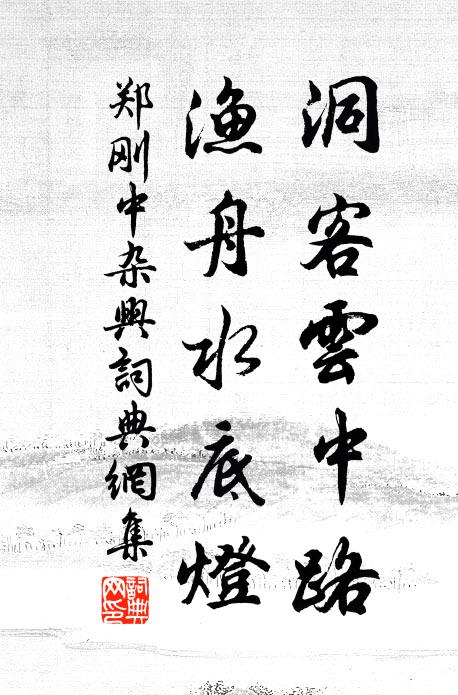 洞客雲中路
漁舟水底燈
郑刚中杂興詞典網集
詞典網印